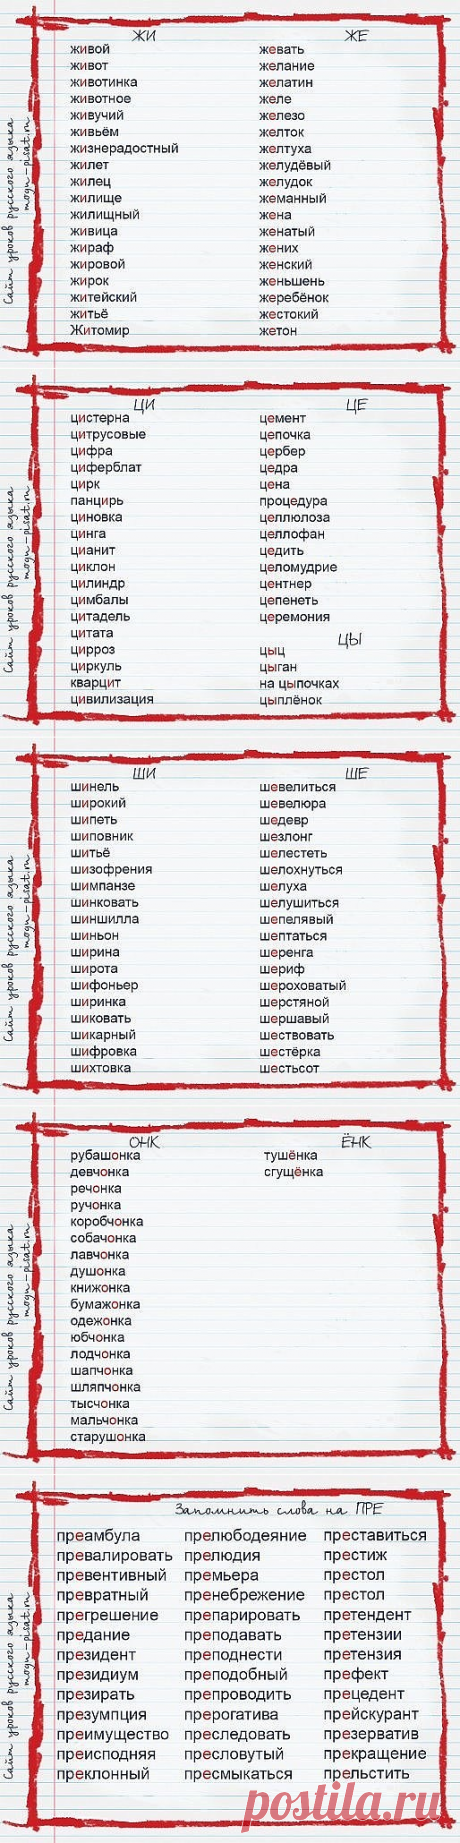 ЖИ ЖЕ
живой жевать
живот желание
животинка желатин
животное желе
живучий железо
живьём желток
жизнерадостный желтуха
жилет желудёвый
жилец желудок
жилище жеманный
жилищный жена
живица женатый
жираф жених
жировой женский
жирок женьшень
житейский жеребёнок
житьё жестокий
Житомир жетон
Сайт уроков русского языка
mogu-pisat.ru
ЦИ ЦЕ
цистерна цемент
цитрусовые цепочка
цифра цербер
циферблат цедра
цирк цена
панцирь процедура
циновка целлюлоза
цинга целлофан
цианит цедить
циклон целомудрие
цилиндр центнер
цимбалы цепенеть
цитадель церемония
цитата ЦЫ
цирроз цыц
циркуль цыган
кварцит на цыпочках
цивилизация цыплёнок
Сайт уроков русского языка
mogu-pisat.ru
ШИ ШЕ
шинель шевелиться
широкий шевелюра
шипеть шедевр
шиповник шезлонг
шитьё шелестеть
шизофрения шелохнуться
шимпанзе шелуха
шинковать шелушиться
шиншилла шепелявый
шиньон шептаться
ширина шеренга
широта шериф
шифоньер шероховатый
ширинка шерстяной
шиковать шершавый
шикарный шествовать
шифровка шестёрка
шихтовка шестьсот
Сайт уроков русского языка
mogu-pisat.ru
ОНК ЁНК
рубашонка тушёнка
девчонка сгущёнка
речонка
ручонка
коробчонка
собачонка
лавчонка
душонка
книжонка
бумажонка
одежонка
юбчонка
лодчонка
шапчонка
шляпчонка
тысчонка
мальчонка
старушонка
Сайт уроков русского языка
mogu-pisat.ru
Запомнить слова на ПРЕ
преамбула прелюбодеяние преставиться
превалировать прелюдия престиж
превентивный премьера престол
превратный пренебрежение престол
прегрешение препарировать претендент
предание преподавать претензии
президент преподнести претензия
президиум преподобный префект
презирать препроводить прецедент
презумпция прерогатива прейскурант
преимущество преследовать презерватив
преисподняя пресловутый прекращение
преклонный пресмыкаться прельстить
Сайт уроков русского языка
mogu-pisat.ru
postila.ru